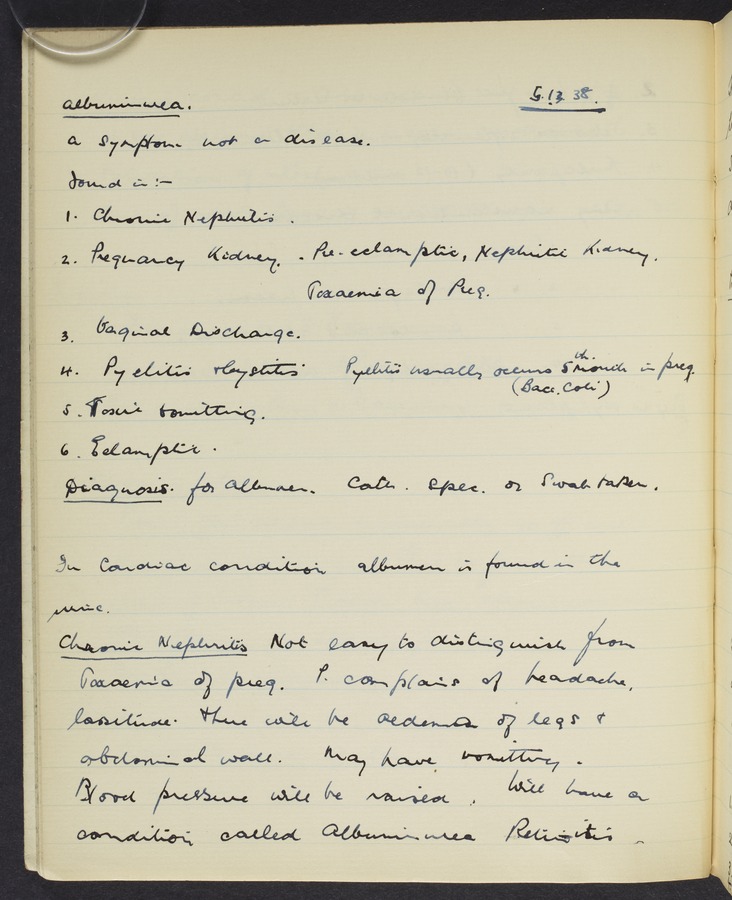 albuminurea. 5.12.38.
a symptom not a disease.
Found in :-
1. Chronic Nephritis.
2. Pregnancy Kidney. - Pre-eclamptic, Nephritic Kidney.
Toxaemia of Preg.
3. Vaginal Discharge.
4. Pyelitis & Cystitis Pyelitis usually occurs 5th month in preg.
(Bacc. Coli)
5. Toxic vomitting.
6. Eclamptic.
Diagnosis. for albumen. Cath. spec. or Swab taken.
In Cardiac condition albumen is found in the
urine.
Chronic Nephritis Not easy to distinguish from
Toxaemia of preg. P. complains of headache,
lassitude. There will be oedema of legs &
abdominal wall. May have vomitting.
Blood pressure will be raised. Will have a
condition called Albuminurea Retinitis.